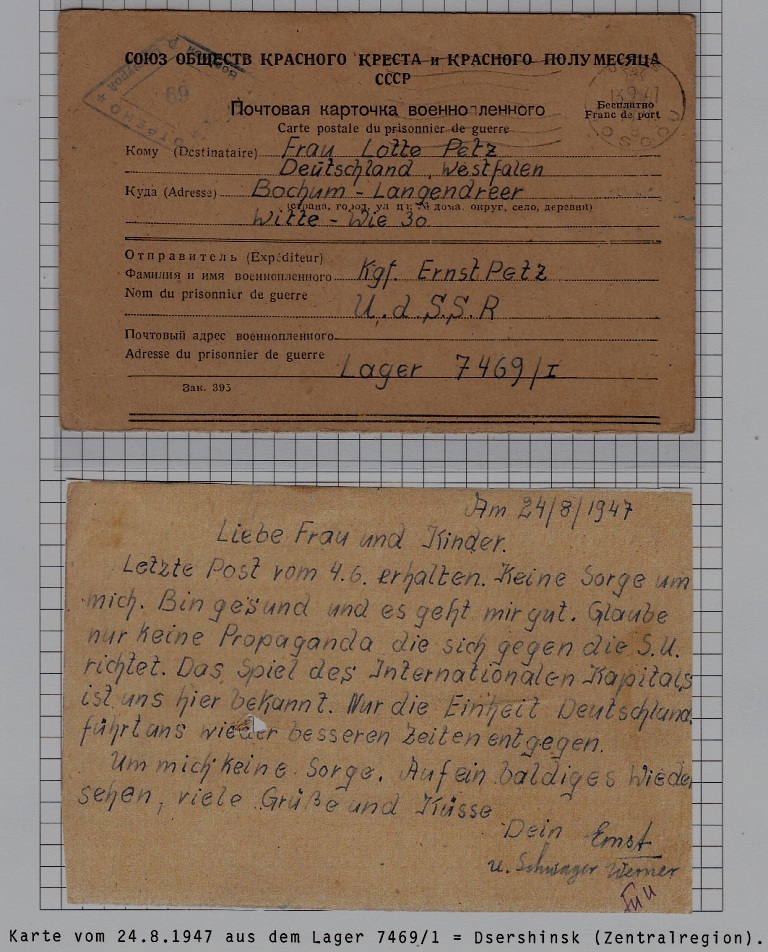 СОЮЗ ОБЩЕСТВ КРАСНОГО КРЕСТА и КРАСНОГО ПОЛУМЕСЯЦА
СССР
Почтовая карточка военнопленного
Бесплатно
Franc de port
Carte postale du prisonnier de guerre
Кому (Destinataire) Frau Lotte Petz
Deutschland, Westfalen
Куда (Adresse) Bochum - Langendreer
(страна, город, ул дома. округ, село, деревня)
Witte - Wie 30
Отправитель (Expéditeur)
Фамилия и имя военнопленного Kgf. Ernst Petz
Nom du prisonnier de guerre
U.d.S.S.R
Почтовый адрес военнопленного
Adresse du prisonnier de guerre
Lager 7469/I
Зак. 395
Am 24/8/1947
Liebe Frau und Kinder.
Letzte Post vom 4.6. erhalten. Keine Sorge um
mich. Bin gesund und es geht mir gut. Glaube
nur keine Propaganda die sich gegen die S.U.
richtet. Das Spiel des Internationalen Kapitals
ist uns hier bekannt. Nur die Einheit Deutschland
führt uns wieder besseren Zeiten entgegen.
Um mich keine Sorge. Auf ein baldiges Wieder
sehen, viele Grüße und Küsse
Dein Ernst
u. Schwager Werner
Karte vom 24.8.1947 aus dem Lager 7469/1 = Dsershinsk (Zentralregion).